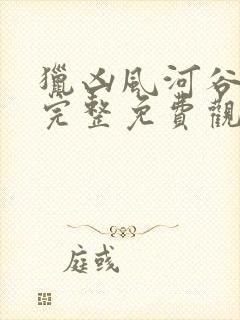 獵凶風河谷
完整免費觀
庭彧